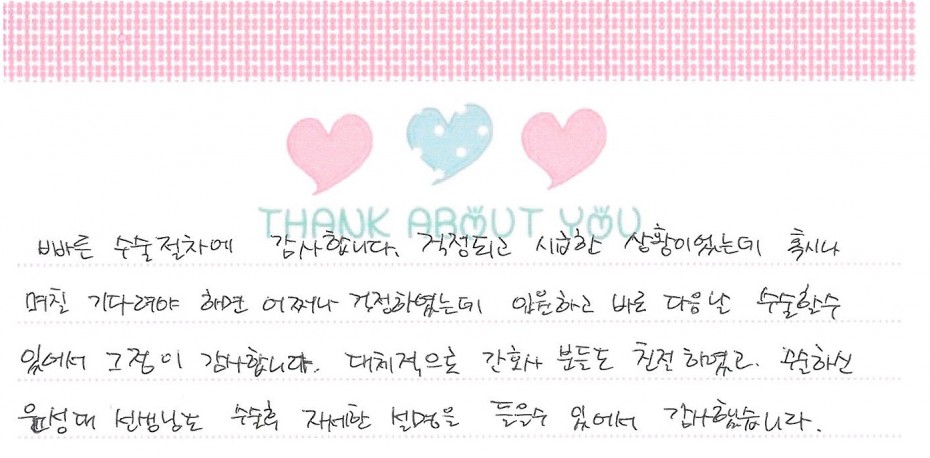 THANK ABOUT YOU
빠른 수술절차에 감사합니다. 걱정되고 시급한 상황이었는데 혹시나
며칠 기다려야 하면 어쩌나 걱정하였는데 입원하고 바로 다음날 수술할수
있어서 그점이 감사합니다. 대체적으로 간호사 분들도 친절하였고. 수술하신
윤성대 선생님도 수술후 자세한 설명을 들을수 있어서 감사했습니다.